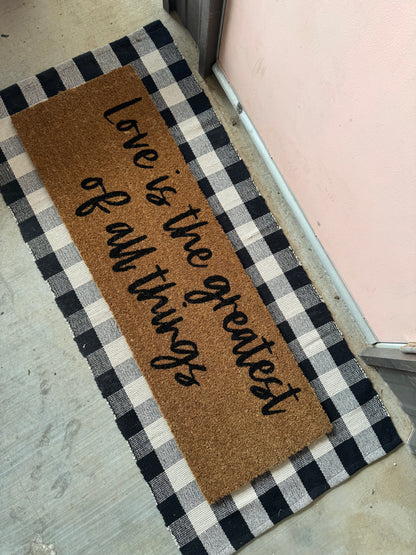 Love is the greatest
of all things